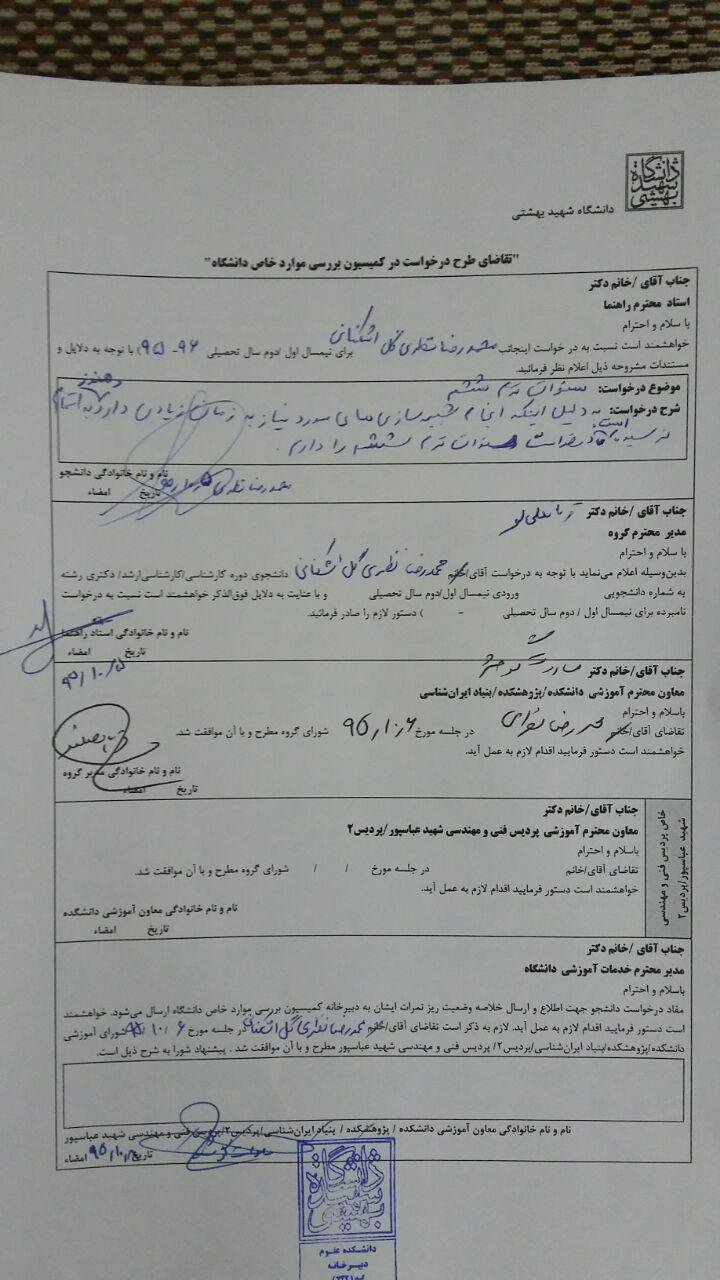 دانشگاه شهید بهشتی
دانشگاه شهید بهشتی
"تقاضای طرح درخواست در کمیسیون بررسی موارد خاص دانشگاه"
جناب آقای /خانم دکتر
استاد محترم راهنما
با سلام و احترام
خواهشمند است نسبت به در خواست اینجانب محمدرضا نظری گل اشکنانی برای نیمسال اول/دوم سال تحصیلی ۹۶-۹۵) با توجه به دلایل و
مستندات مشروحه ذیل اعلام نظر فرمائید.
موضوع درخواست: سنوات ترم ششم
شرح درخواست: به دلیل اینکه انجام شبیه سازی های مورد نیاز به زمان زیادی دارد و هنوز به اتمام
نرسیده است، درخواست سنوات ترم ششم را دارم.
نام و نام خانوادگی دانشجو
محمدرضا نظری
تاریخ امضاء
جناب آقای /خانم دکتر
مدیر محترم گروه
با سلام و احترام
بدین‌وسیله اعلام می‌نماید با توجه به درخواست آقای/خانم محمدرضا نظری گل اشکنانی دانشجوی دوره کارشناسی/کارشناسی‌ارشد/ دکتری رشته
به شماره دانشجویی ورودی نیمسال اول/دوم سال تحصیلی و با عنایت به دلایل فوق‌الذکر خواهشمند است نسبت به درخواست
نامبرده برای نیمسال اول / دوم سال تحصیلی - ) دستور لازم را صادر فرمائید.
نام و نام خانوادگی استاد راهنما
تاریخ امضاء
جناب آقای/خانم دکتر
معاون محترم آموزشی دانشکده/پژوهشکده/بنیاد ایران‌شناسی
باسلام و احترام
تقاضای آقای/خانم محمدرضا نظری در جلسه مورخ ۹۵/۱۰/۶ شورای گروه مطرح و با آن موافقت شد.
خواهشمند است دستور فرمایید اقدام لازم به عمل آید.
نام و نام خانوادگی مدیر گروه
تاریخ امضاء
خاص پردیس فنی و مهندسی
شهید عباسپور/پردیس۲
جناب آقای/خانم دکتر
معاون محترم آموزشی پردیس فنی و مهندسی شهید عباسپور/پردیس۲
باسلام و احترام
تقاضای آقای/خانم در جلسه مورخ / / شورای گروه مطرح و با آن موافقت شد.
خواهشمند است دستور فرمایید اقدام لازم به عمل آید.
نام و نام خانوادگی معاون آموزشی دانشکده
تاریخ امضاء
جناب آقای /خانم دکتر
مدیر محترم خدمات آموزشی دانشگاه
باسلام و احترام
مفاد درخواست دانشجو جهت اطلاع و ارسال خلاصه وضعیت ریز نمرات ایشان به دبیرخانه کمیسیون بررسی موارد خاص دانشگاه ارسال می‌شود. خواهشمند
است دستور فرمایید اقدام لازم به عمل آید. لازم به ذکر است تقاضای آقای/خانم محمدرضا نظری گل اشکنانی در جلسه مورخ ۹۵/۱۰/۶ شورای آموزشی
دانشکده/پژوهشکده/بنیاد ایران‌شناسی/پردیس۲/ پردیس فنی و مهندسی شهید عباسپور مطرح و با آن موافقت شد . پیشنهاد شورا به شرح ذیل است.
نام و نام خانوادگی معاون آموزشی دانشکده / پژوهشکده / بنیاد ایران‌شناسی / پردیس۲/پردیس فنی و مهندسی شهید عباسپور
تاریخ امضاء
دانشگاه شهید بهشتی
دانشکده علوم
دبیرخانه